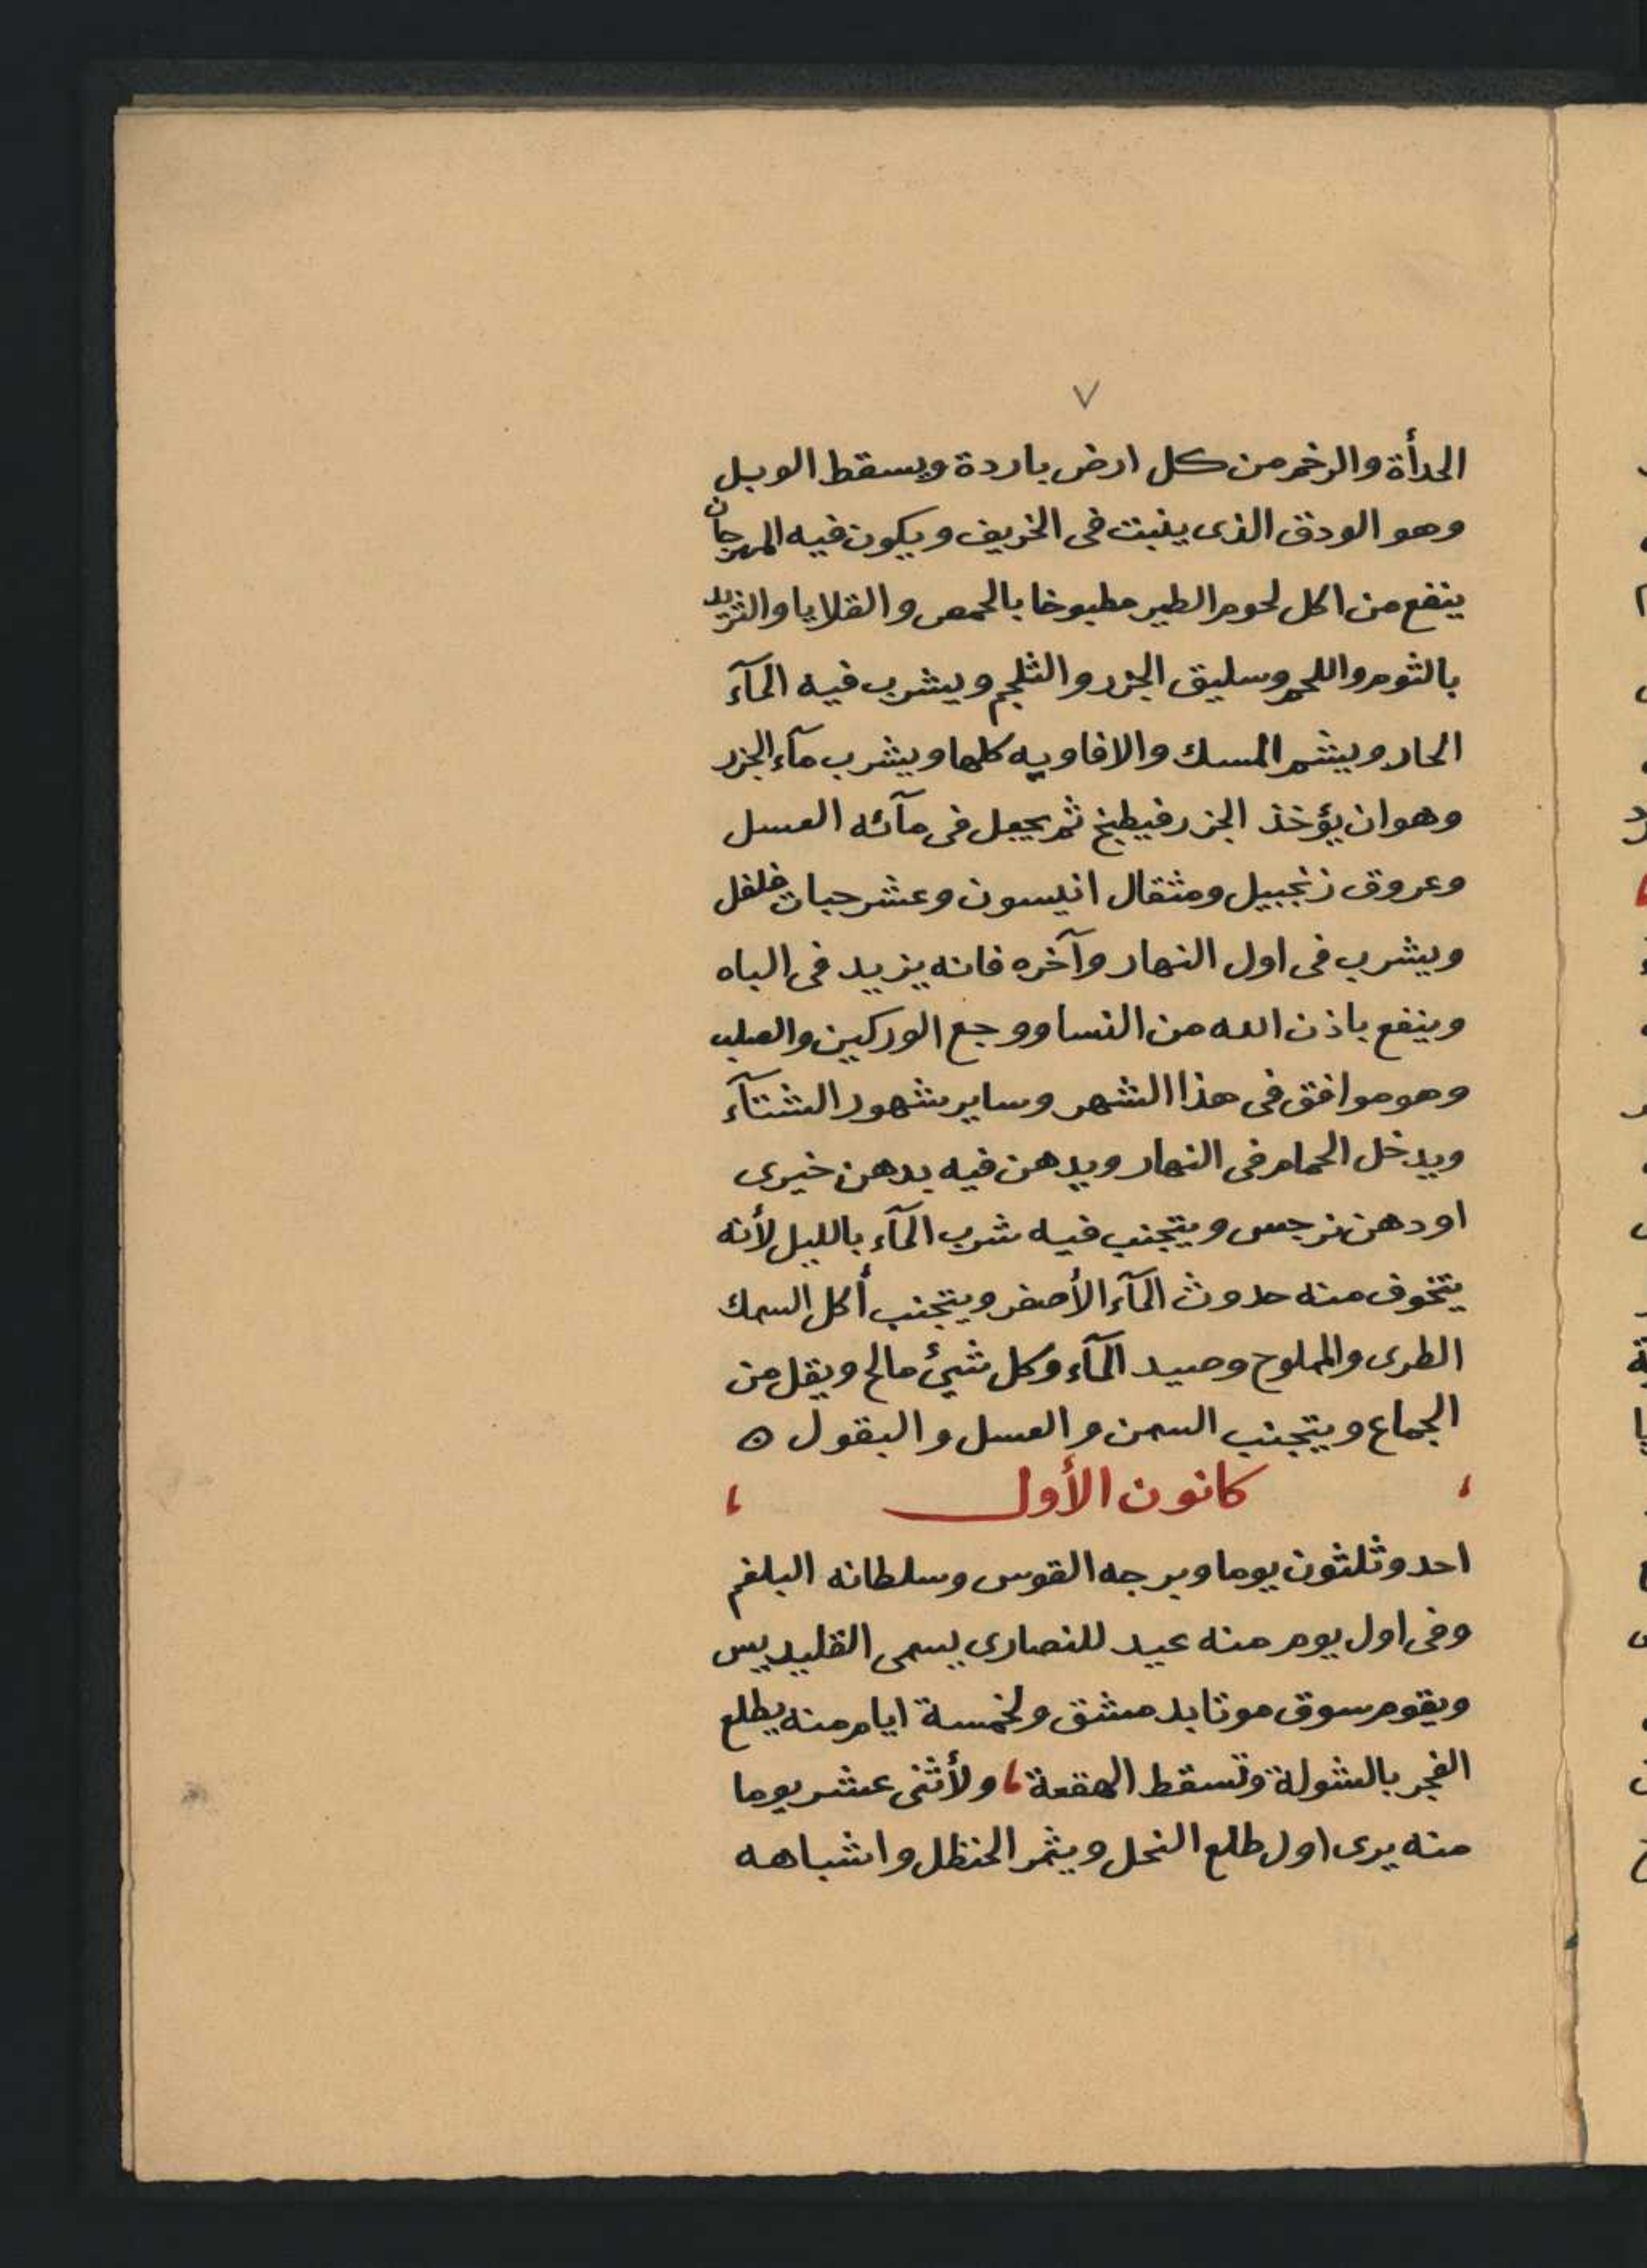 ٧
الحدأة والرخم من كل ارض باردة ويسقط الوبل
وهو الودق الذى ينبت فى الخريف ويكون فيه المهرجان
ينفع من اكل لحوم الطير مطبوخا بالحمص والقلايا والثريد
بالثوم واللحم وسليق الجزر والثلجم ويشرب فيه المآء
الحار ويشم المسك والافاويه كلها ويشرب مآء الجزر
وهو ان يؤخذ الجزر فيطبخ ثم يجعل فى مآئه العسل
وعروق زنجبيل ومثقال انيسون وعشر حبات فلفل
ويشرب فى اول النهار وآخره فانه يزيد فى الباه
وينفع باذن الله من النسا ووجع الوركين والصلب
وهو موافق فى هذا الشهر وساير شهور الشتآء
ويدخل الحمام فى النهار ويدهن فيه بدهن خيرى
او دهن نرجس ويتجنب فيه شرب المآء بالليل لأنه
يتخوف منه حدوث المآء الأصفر ويتجنب أكل السمك
الطرى والمملوح وصيد المآء وكل شيئ مالح ويقل من
الجماع ويتجنب السمن والعسل والبقول ه
، كانون الأول ،
احد وثلثون يوما وبرجه القوس وسلطانه البلغم
وفى اول يوم منه عيد للنصارى يسمى القليديس
ويقوم سوق موتا بدمشق ولخمسة ايام منه يطلع
الفجر بالشولة وتسقط الهقعة ، ولأثنى عشر يوما
منه يرى اول طلع النحل ويثمر الحنظل واشباهه